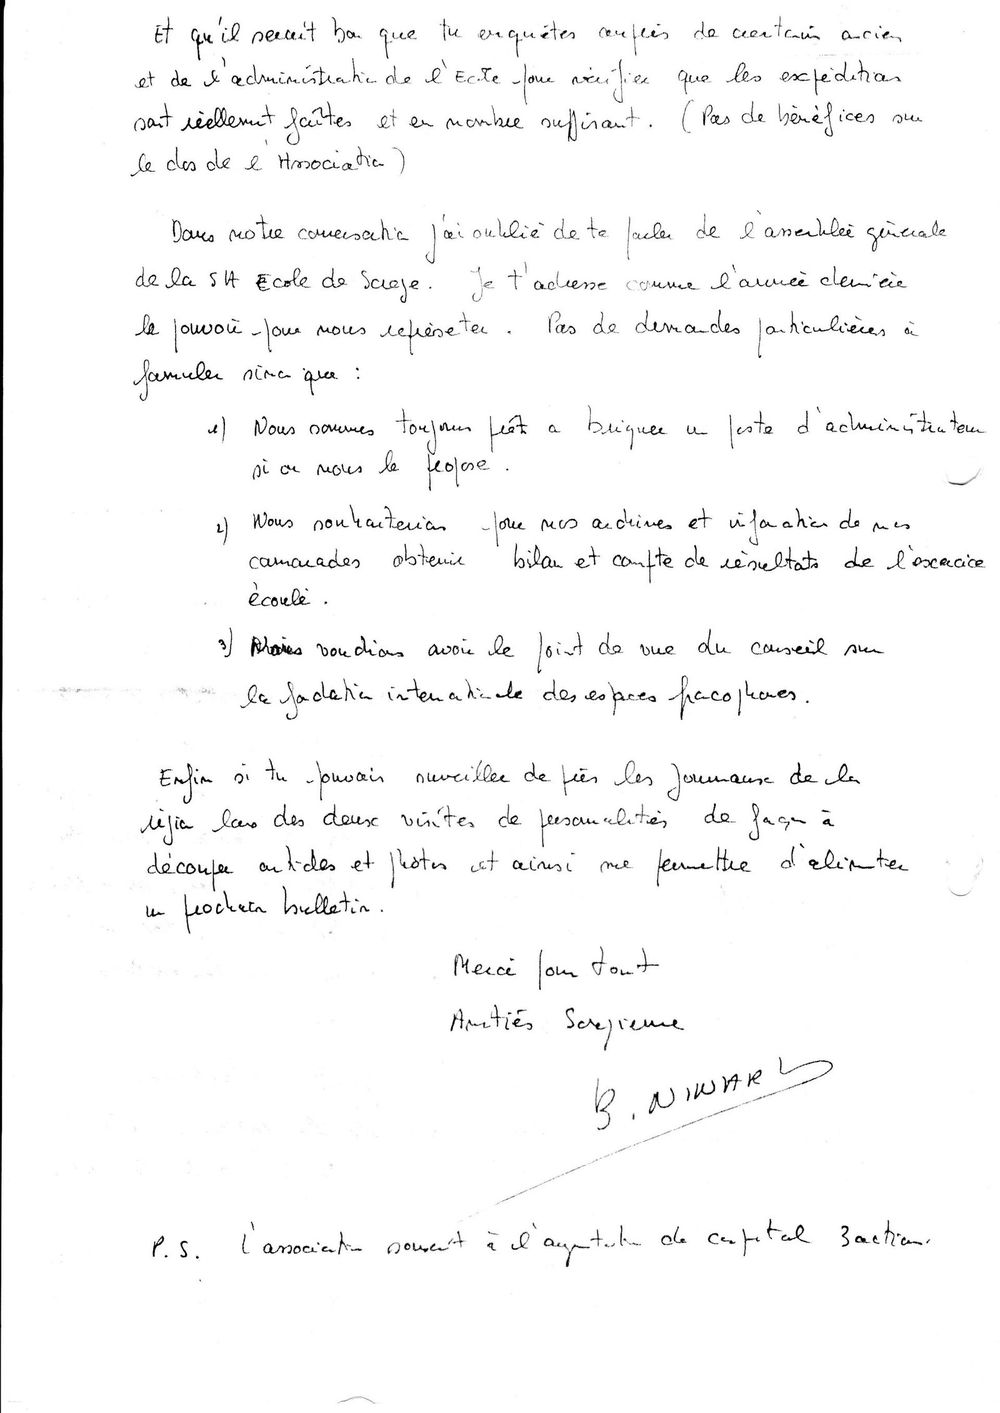 Et qu'il serait bon que tu enquêtes auprès de certain ancien
et de l'administration de l'Ecole pour vérifier que les expéditions
sont réellement faîtes et en nombre suffisant. (Pas de bénéfices sur
le dos de l'Association)
Dans notre conversation j'ai oublié de te parler de l'assemblée générale
de la SA Ecole de Sorèze. Je t'adresse comme l'année dernière
le pouvoir pour nous représenter. Pas de demandes particulières à
formuler sinon que :
1) Nous sommes toujours prêt a briguer un poste d'administrateur
si on nous le propose.
2) Nous souhaiterions pour nos archives et information de nos
camarades obtenir bilan et compte de résultats de l'exercice
écoulé.
3) voudrions avoir le point de vue du conseil sur
la fondation internationale des espaces francophones.
Enfin si tu pouvais surveiller de près les journaux de la
région lors des deux visites de personnalités de façon à
découper articles et photos et ainsi me permettre d'alimenter
un prochain bulletin.
Merci pour tout
Amitiés Sorézienne
B. NINARD
P.S. L'association souscrit à l'augmentation de capital 3 actions.